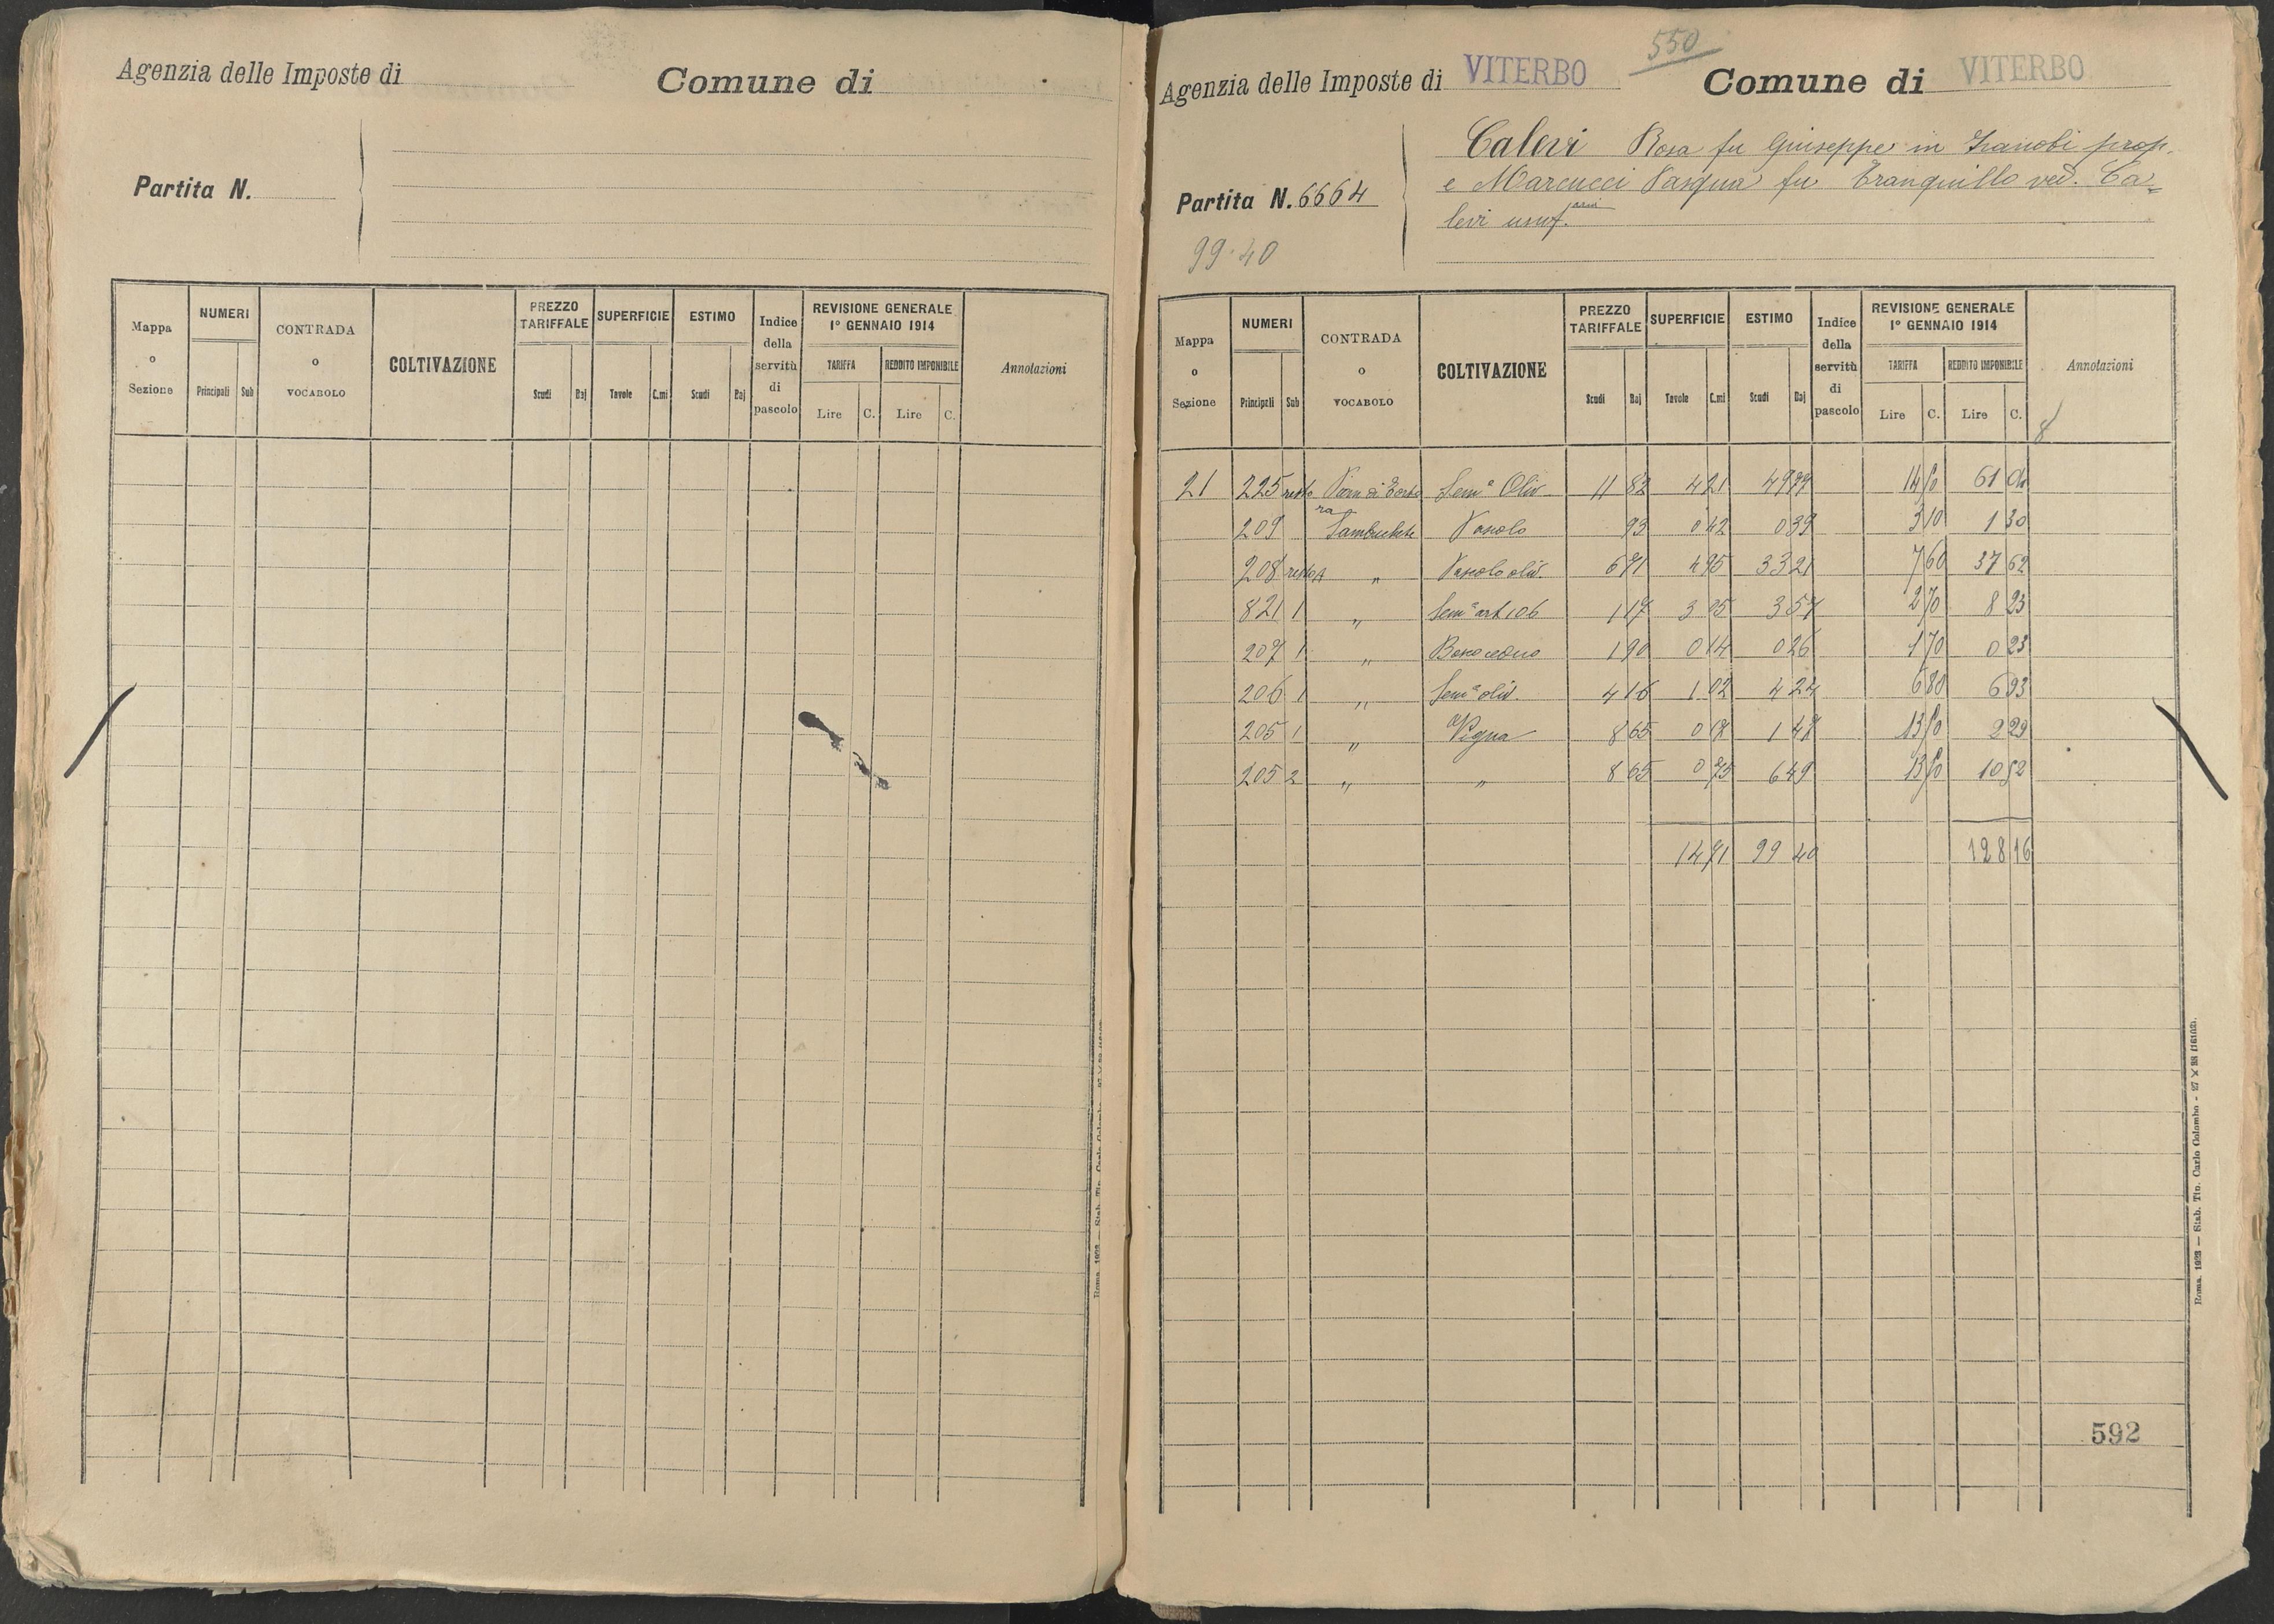 Agenzia delle Imposte di
Comune di
Partita N.
Mappa o Sezione
NUMERI
Principali Sub
CONTRADA o VOCABOLO
COLTIVAZIONE
PREZZO TARIFFALE
Scudi Baj
SUPERFICIE
Tavole C.mi
ESTIMO
Scudi Baj
Indice della servitù di pascolo
REVISIONE GENERALE
1° GENNAIO 1914
TARIFFA REDDITO IMPONIBILE
Lire C. Lire C.
Annotazioni
550
Agenzia delle Imposte di VITERBO
Comune di VITERBO
Partita N. 6664
99.40
Calevi Rosa fu Giuseppe in Zanobi prop.
e Marcucci Pasqua fu Tranquillo ved. Ca=
levi usuf.
Mappa o Sezione
NUMERI
Principali Sub
CONTRADA o VOCABOLO
COLTIVAZIONE
PREZZO TARIFFALE
Scudi Baj
SUPERFICIE
Tavole C.mi
ESTIMO
Scudi Baj
Indice della servitù di pascolo
REVISIONE GENERALE
1° GENNAIO 1914
TARIFFA REDDITO IMPONIBILE
Lire C. Lire C.
Annotazioni
21 225 resto Sem° Oliv 11 82 4 21 49 77 14 50 61 04
209 Pascolo 93 0 42 0 39 3 10 1 30
208 resto A " Pascolo oliv. 6 71 4 95 33 21 7 60 37 62
821 1 " Sem° art 106 1 17 3 05 3 57 2 70 8 23
207 1 " Bosco ceduo 1 90 0 14 0 26 1 70 0 23
206 1 " Sem° oliv. 4 16 1 02 4 24 6 80 6 93
205 1 " Vigna 8 65 0 17 1 47 13 50 2 29
205 2 " " 8 65 0 75 6 49 13 50 10 52
14 71 99 40 128 16
592
Roma, 1923 — Stab. Tip. Carlo Colombo